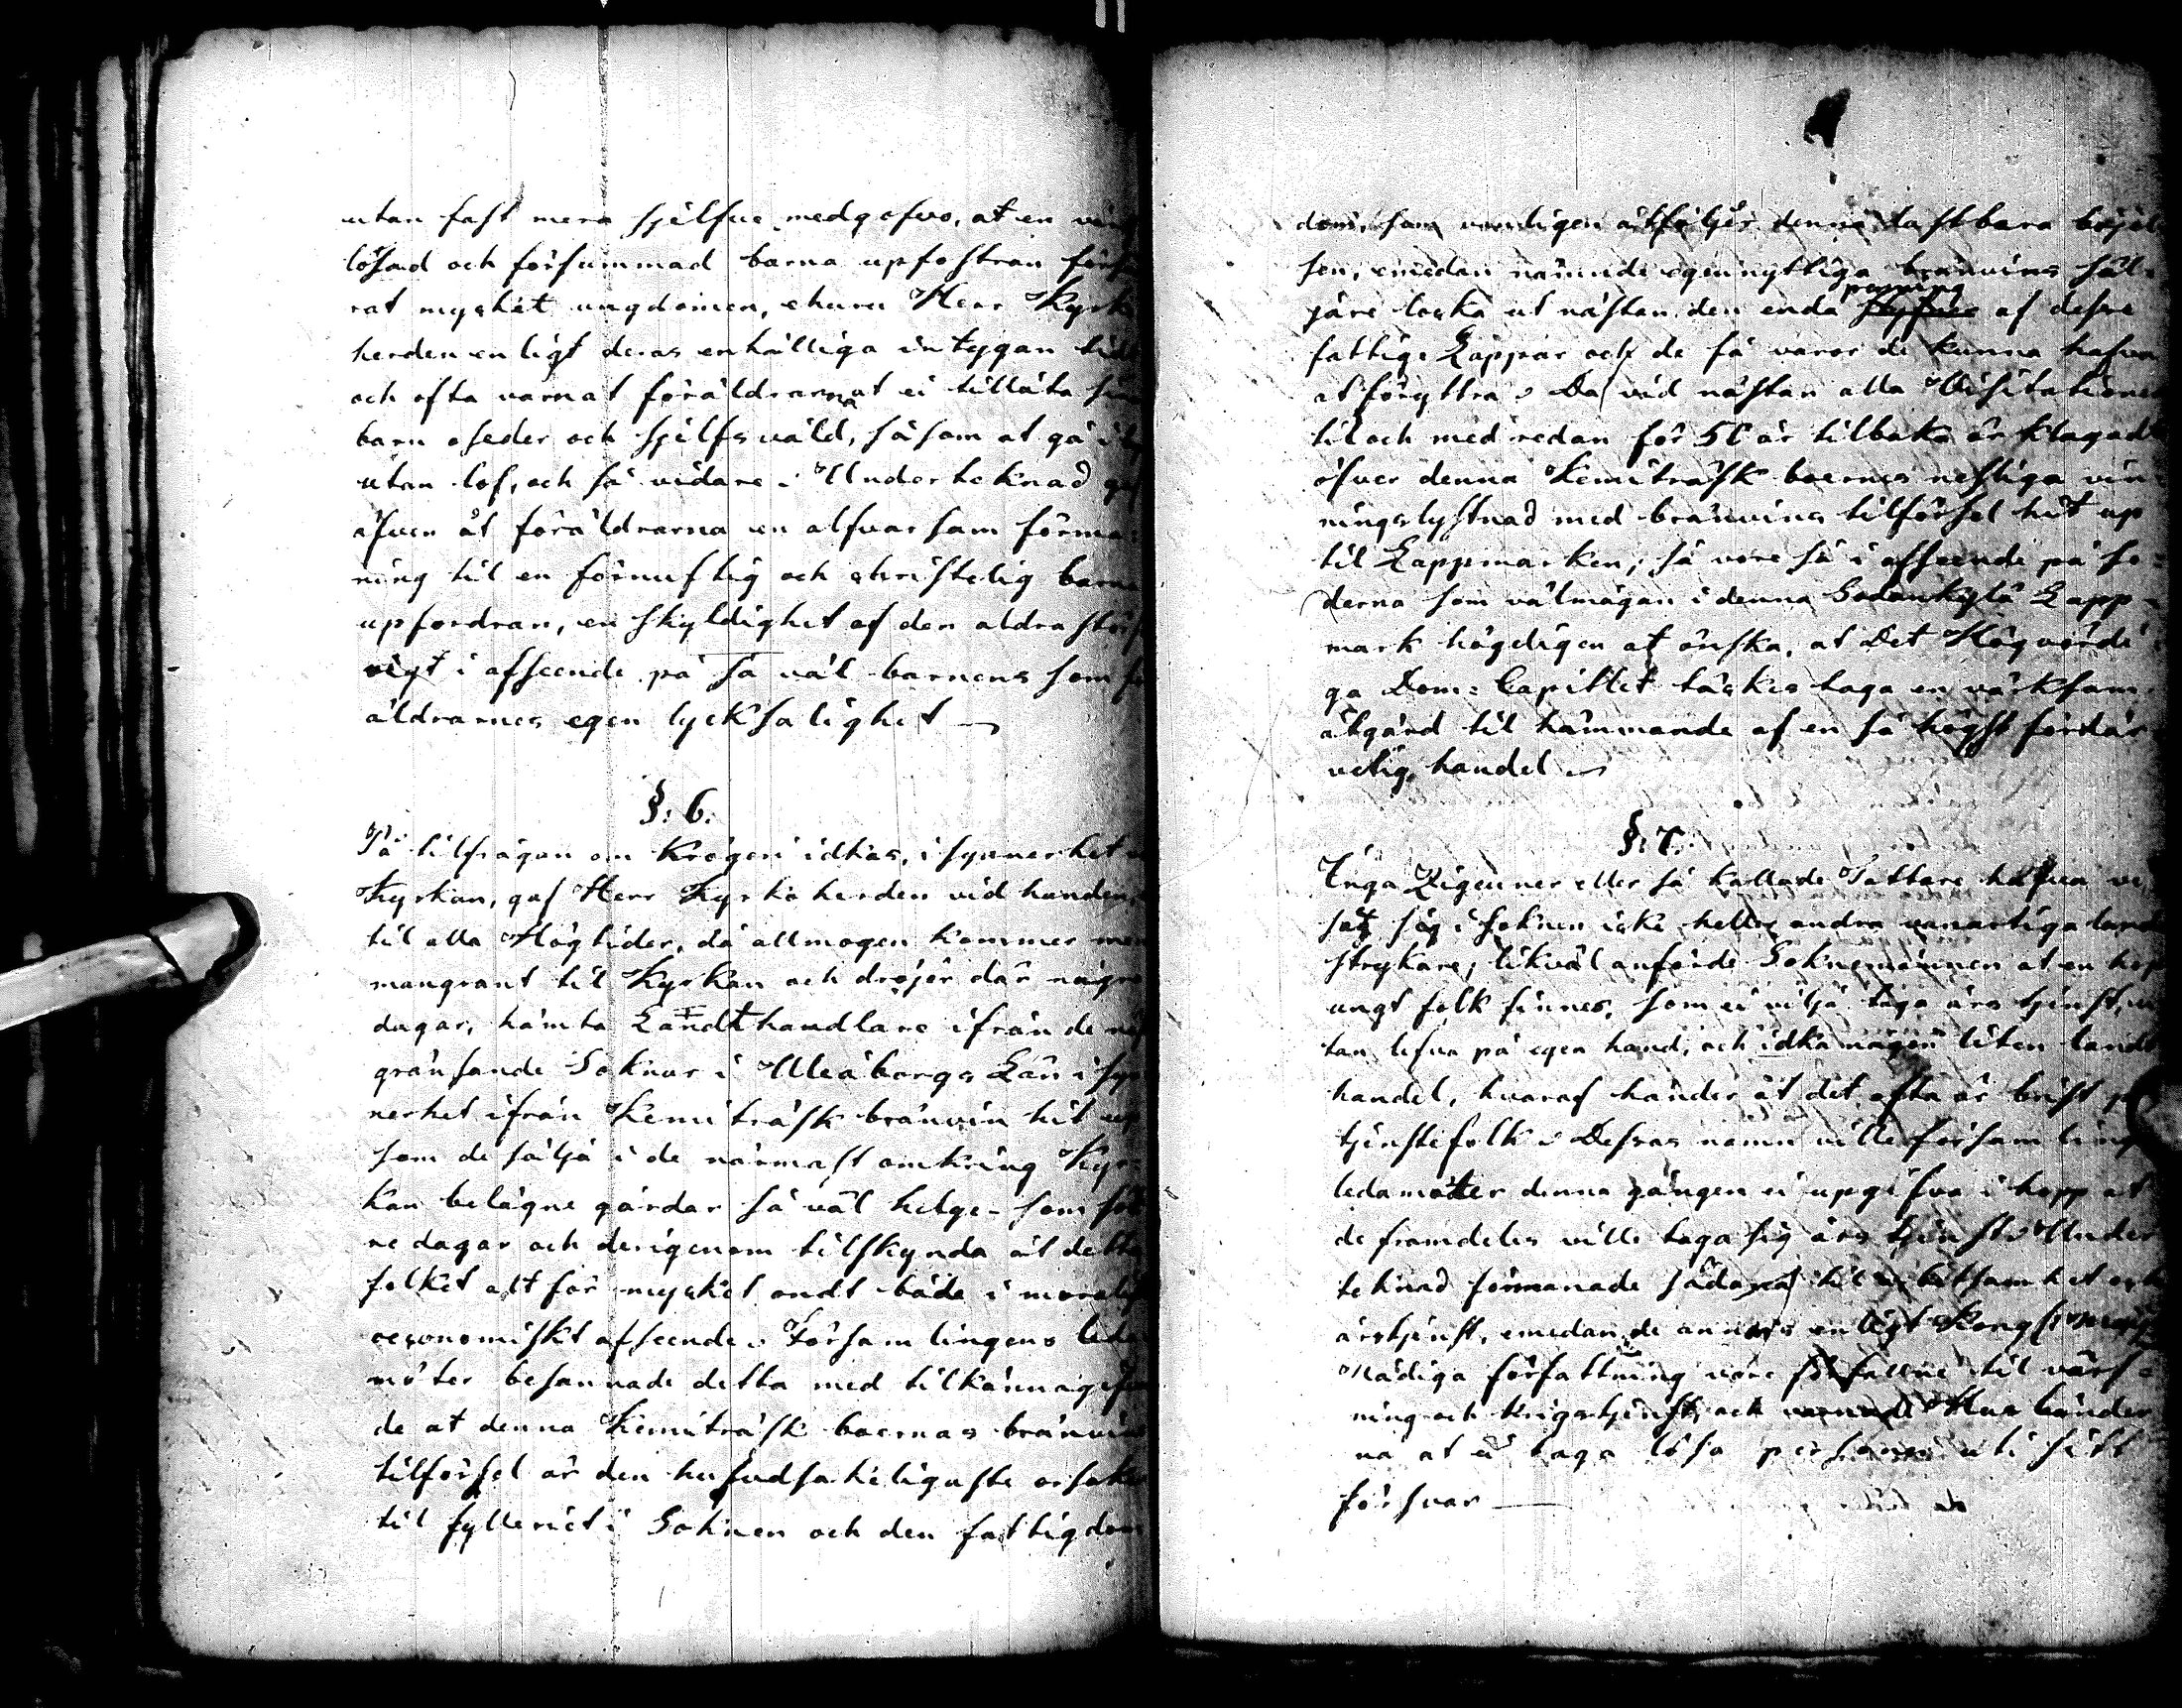 utan fast mera sjelfve medgofvo, at en
lösad och försummad barna upfostran
rat mycket ungdomen, ehuru Herr Kyrko
herden enligt deras enhälliga intygan
och ofta varnat föräldrarna at ei tillåta
barn oseder och sjelfsvåld, såsom at gå
utan lof, och så vidare. Underteknad
äfven åt föräldrarna en alfvarsam förma-
ning til en förnuftig och christelig barna
upfordran, en skyldighet af den aldra
vigt i afseende på så väl barnens som
äldrarnes egen lycksalighet
§. 6.
På tilfrågan om krögeri idkas, i synnerhet
Kyrkan, gaf Herr Kyrkoherden vid handen,
til alla Högtider, då allmogen kommer
mangrant til Kyrkan och dröjer där några
dagar, hämta Landthandlare ifrån de
gränsande Soknar i Uleåborgs Län i syn
nerhet ifrån Kemiträsk bränvin hit up
som de sälja i de närmast omkring Kyr-
kan belägne gårdar så väl helge- som
ne dagar och derigenom tilskynda åt detta
folket alt för mycket ondt både i
oeconomiskt afseende. Församlingens leda
möter besannade detta med tilkännagifvan
de at denna Kemiträsk boernas bränvins
tilförsel är den hufvudsakeligaste orsaken
til fylleriet i Soknen och den fattigdom
dom, som vanligen åtföljer denna lastbara böjel
sen, emedan nämnde egennyttiga bränvins säl-
jare locka ut nästan den enda penning af desse
fattige Lappar och de få varor de kunna hafva
at föryttra. Då vid nästan alla Visitationer
til och med redan för 50 år tilbaka är klagadt
öfver denna Kemiträsk boernes nesliga vin-
ningslystnad med bränvins tilförsel hit up
til Lappmarken; så vore så i afseende på se-
derna som välmågan i denna Sodankylä Lapp-
mark högeligen at önska, at Det Högvördi-
ga Dom-Capitlet täckes taga en värksam
åtgärd til hämmande af en så högst fördär-
velig handel.
§. 7.
Inga Zigeuner eller så kallade Tattare hafva
sat sig i Soknen icke heller andra vanartiga land
strykare; likväl anförde Soknemännen at en hop
ungt folk finnes, som ei vilja taga års tjenst, u
tan lefva på egen hand, och idka någon liten landt
handel, hvaraf händer at det ofta är brist på
tjenstefolk. Dessas namn ville församlings
ledamöter denna gången ei upgifva i hopp at
de framdeles ville taga sig års tjenst. Under
teknad förmanade sådana til arbetsamhet och
årstjenst, emedan de annars enligt Kongl. Maj:ts
Nådiga författning vore förfallne til värf-
ning och krigstjenst, och varnade Husbönder
na at ei taga lösa personer uti sitt
försvar